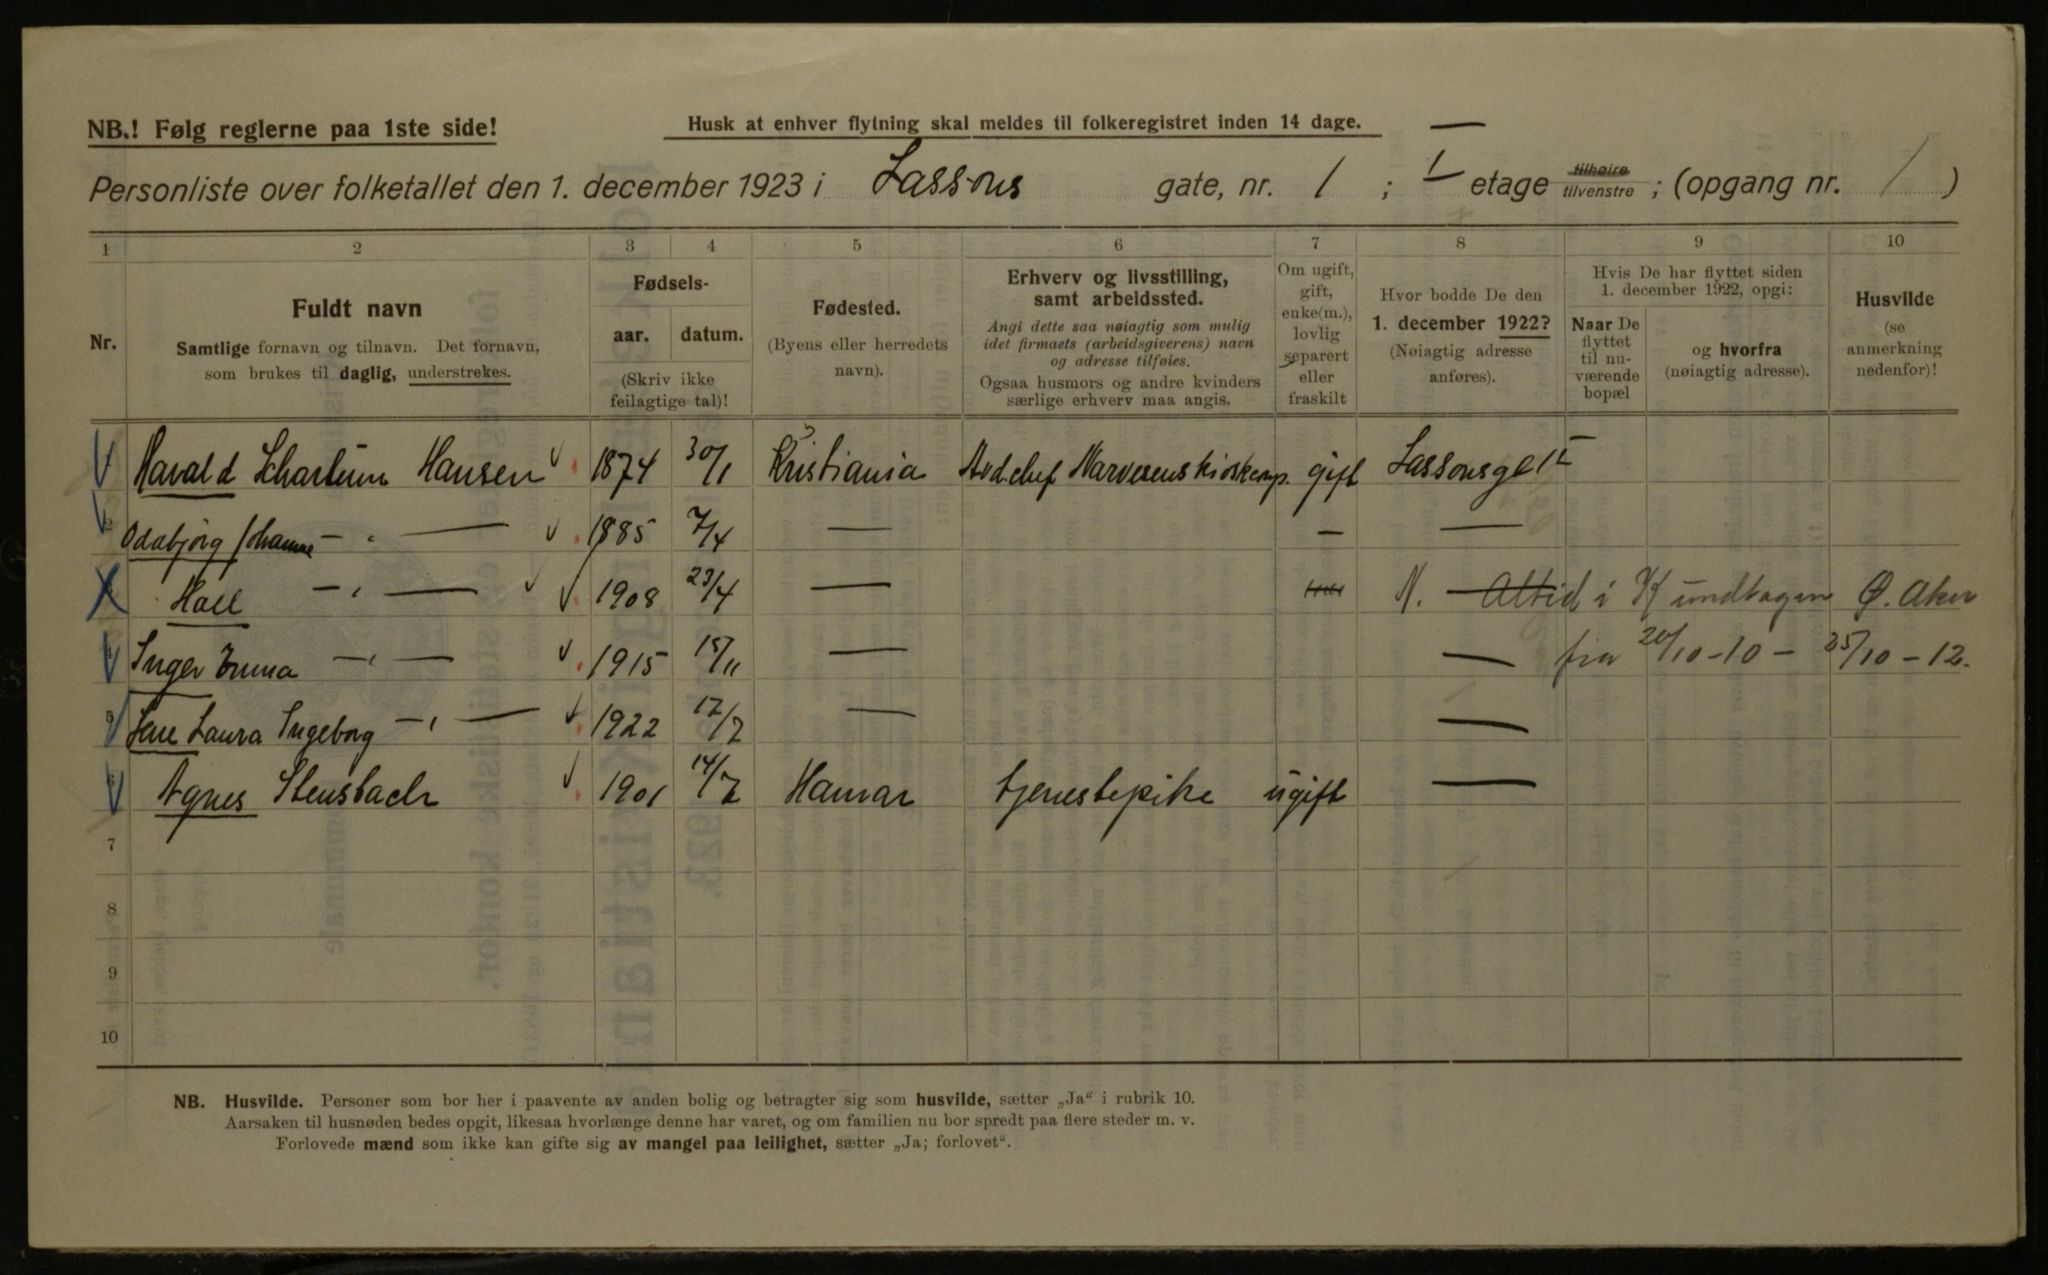 NB.! Følg reglerne paa 1ste side!
Husk at enhver flytning skal meldes til folkeregistret inden 14 dage.
Personliste over folketallet den 1. december 1923 i Lassons gate, nr. 1 ; I etage tilhøire tilvenstre ; (opgang nr. / )
1 2 3 4 5 6 7 8 9 10
Nr.
Fuldt navn
Samtlige fornavn og tilnavn. Det fornavn,
som brukes til daglig, understrekes.
Fødsels-
aar. datum.
(Skriv ikke
feilagtige tal)!
Fødested.
(Byens eller herredets
navn).
Erhverv og livsstilling,
samt arbeidssted.
Angi dette saa nøiagtig som mulig
idet firmaets (arbeidsgiverens) navn
og adresse tilføies.
Ogsaa husmors og andre kvinders
særlige erhverv maa angis.
Om ugift,
gift,
enke(m.),
lovlig
separert
eller
fraskilt
Hvor bodde De den
1. december 1922?
(Nøiagtig adresse
anføres).
Hvis De har flyttet siden
1. december 1922, opgi:
Naar De
flyttet
til nu-
værende
bopæl
og hvorfra
(nøiagtig adresse).
Husvilde
(se
anmerkning
nedenfor)!
Harald Schartum Hansen 1874 30/1 Kristiania Avd.chef Narvesens kioskomp. gift Lassonsg 1 I
2 Oddbjörg Johanne — " — 1885 7/4 — — —
Hall — " — 1908 23/4 — N. — Altid i Kundtagen Ø. Aker
Inger Emma — " — 1915 15/11 — — fra 20/10-10 — 25/10-12.
5 Lene Laura Ingeborg — " — 1922 12/2 — —
6 Agnes Stensbach 1901 14/2 Hamar tjenestepike ugift —
7
8
9
10
NB. Husvilde. Personer som bor her i paavente av anden bolig og betragter sig som husvilde, sætter „Ja" i rubrik 10.
Aarsaken til husnøden bedes opgit, likesaa hvorlænge denne har varet, og om familien nu bor spredt paa flere steder m. v.
Forlovede mænd som ikke kan gifte sig av mangel paa leilighet, sætter „Ja; forlovet".